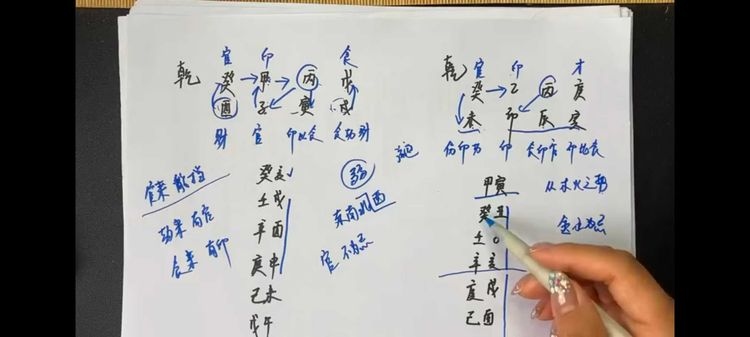 官 印 食
乾 癸 甲 丙 戊
酉 子 寅 戌
财 官 印比食 食劫财
癸亥
壬戌
辛酉
庚申
己未
戊午
官来 散档
劫来 有官
食来 有印
弱
东南 西
官 不为忌
官 印 才
乾 癸 乙 丙 庚
未 卯 辰 寅
伤印劫 印 食印官 印比食
甲寅
癸丑
壬
辛亥
庚戌
己酉
从木火之势
金 为忌